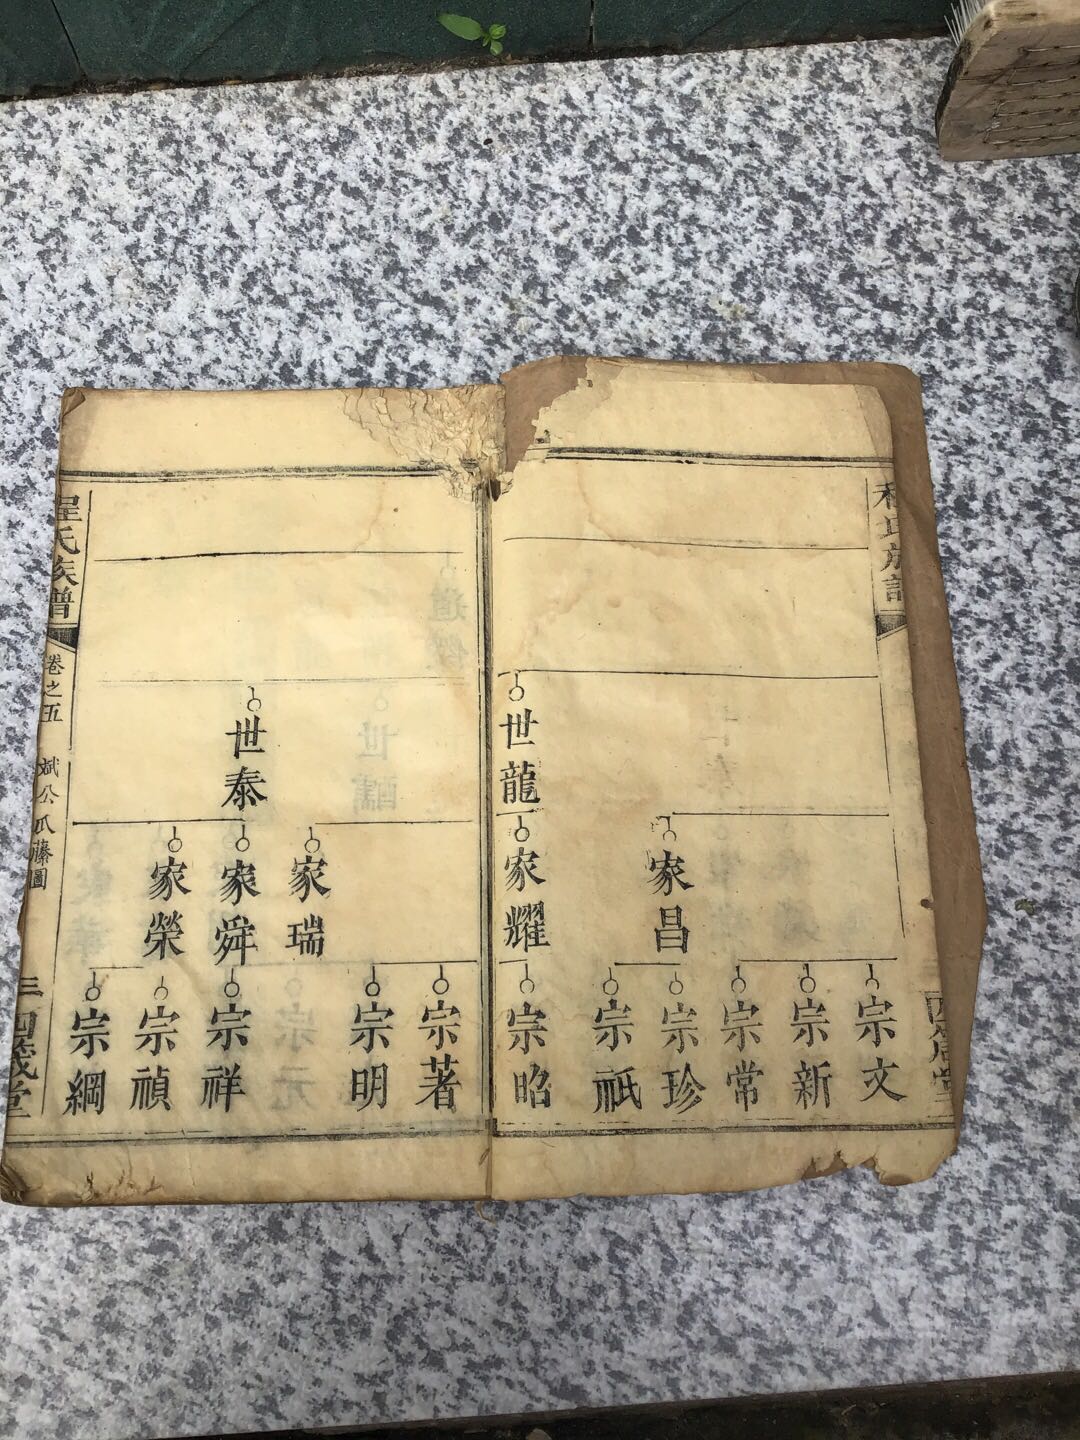 程氏族譜
世龍
家昌
家耀
宗文
宗新
宗常
宗珍
宗祇
宗昭
世泰
家瑞
家舜
家榮
宗著
宗明
宗祥
宗禎
宗綱
程氏族譜
卷之五
斌公瓜藤圖
三
四箴堂